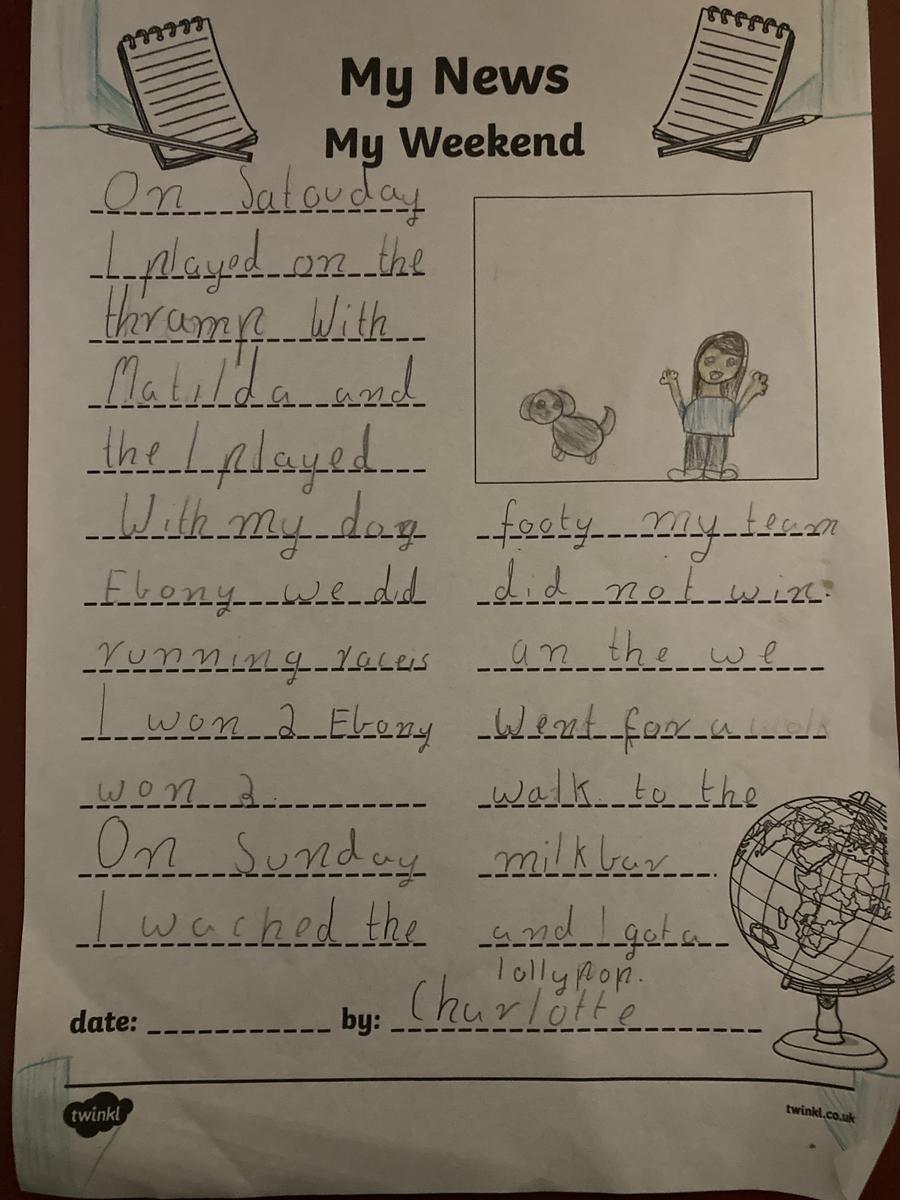 My News
My Weekend
On Satouday
I played on the
thramp With
Matilda and
the I played
With my dog
Ebony we did
running raceis
I won 2 Ebony
won 2.
On Sunday
I wached the
footy my team
did not win.
an the we
Went for a walk
walk to the
milkbar.
and I got a
lollypop.
date: by: Charlotte
twinkl
twinkl.co.uk